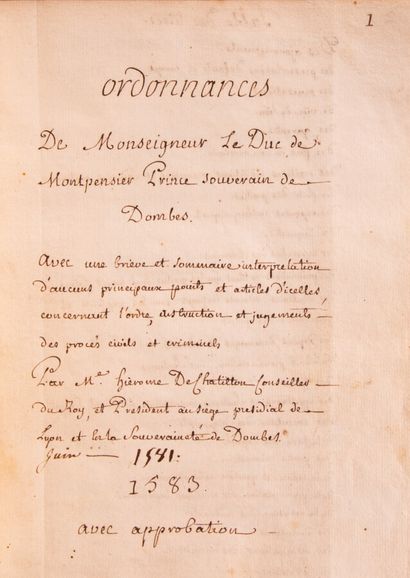 1
ordonnances
De Monseigneur Le Duc de
Montpensier Prince souverain de
Dombes.
Avec une brieve et sommaire interpretation
d'aucuns principaux points et articles d'icelles
concernant l'ordre, instruction et jugements
des procés civils et criminels
Par Me. hierome DeChatillon Conseiller
du Roy, et President au siège presidial de
Lyon et En la Souveraineté de Dombes.
Juin 1581.
1583.
avec approbation